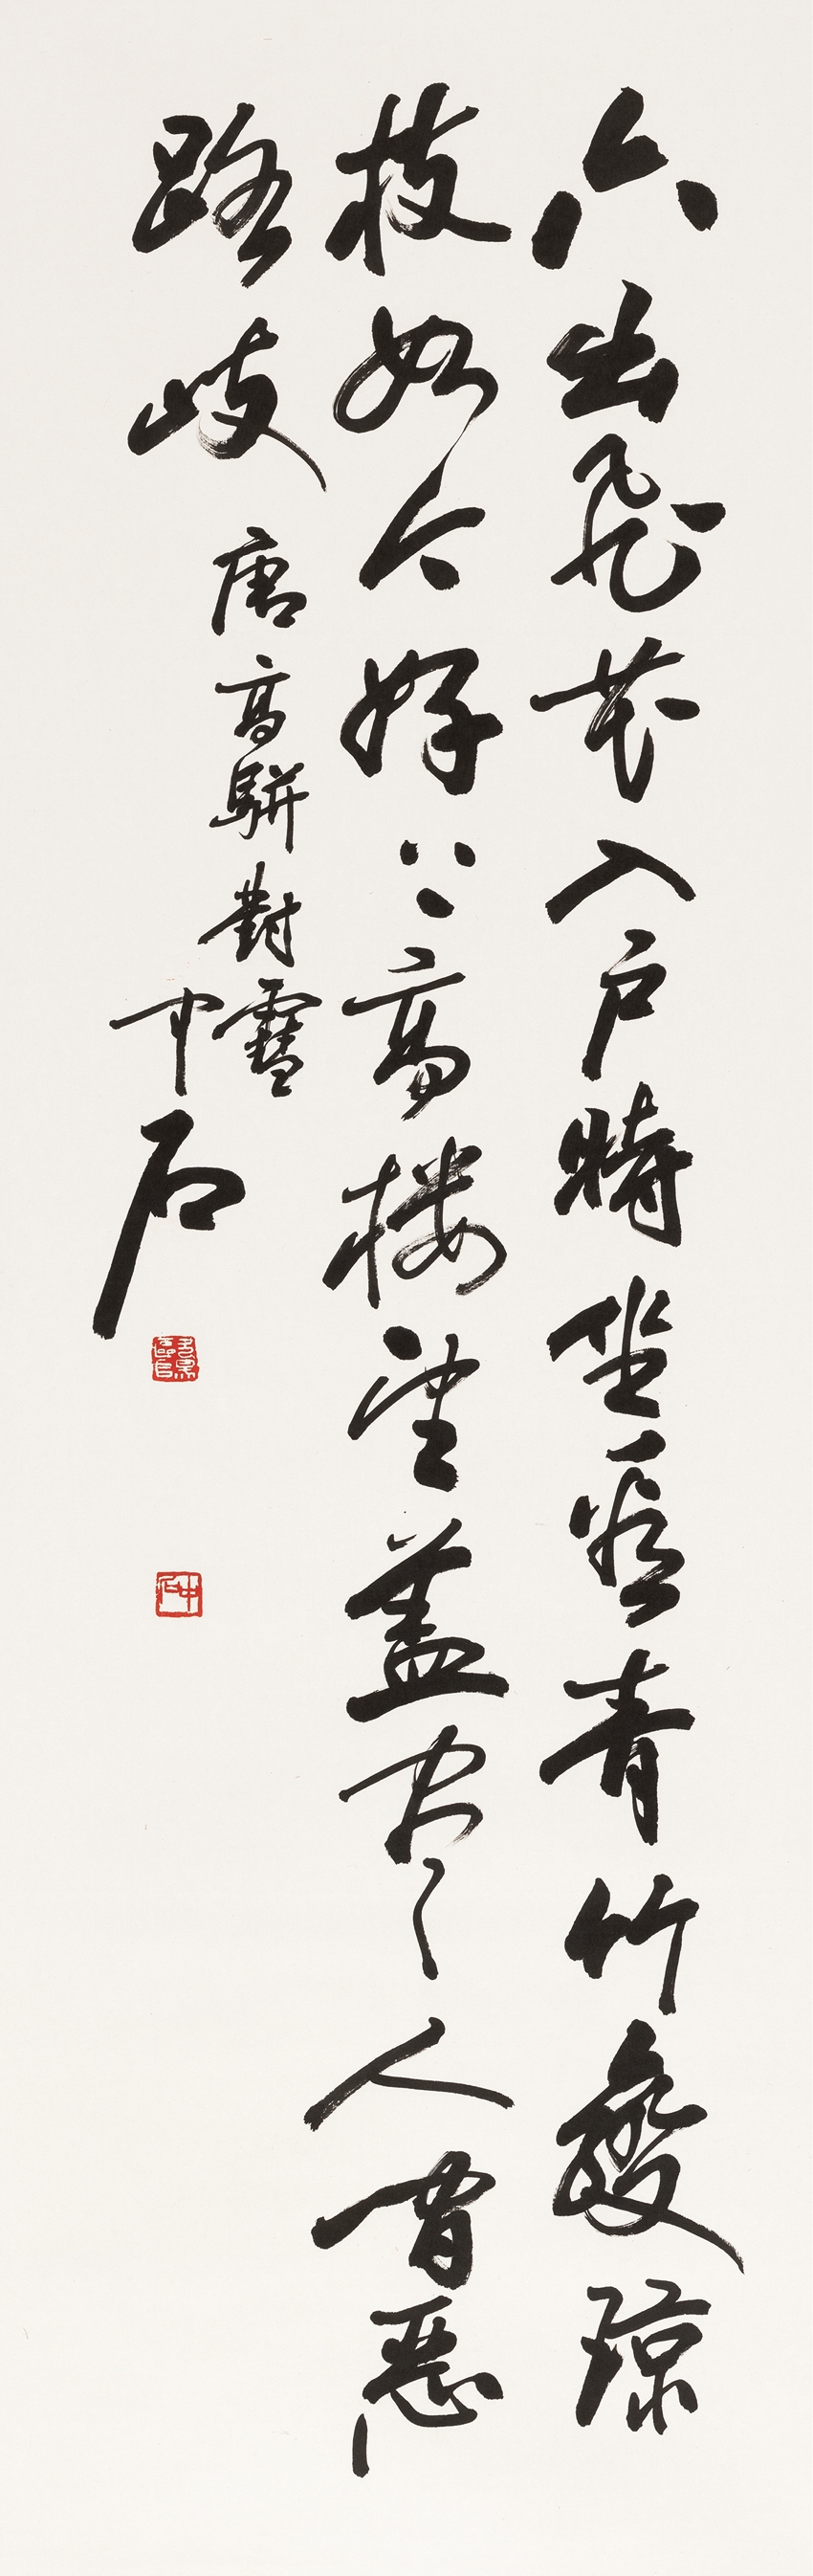 六出飛花入户時坐看青竹變琼
枝如今好上高楼望蓋尽人間惡
路岐
唐高駢對雪
中石
中石